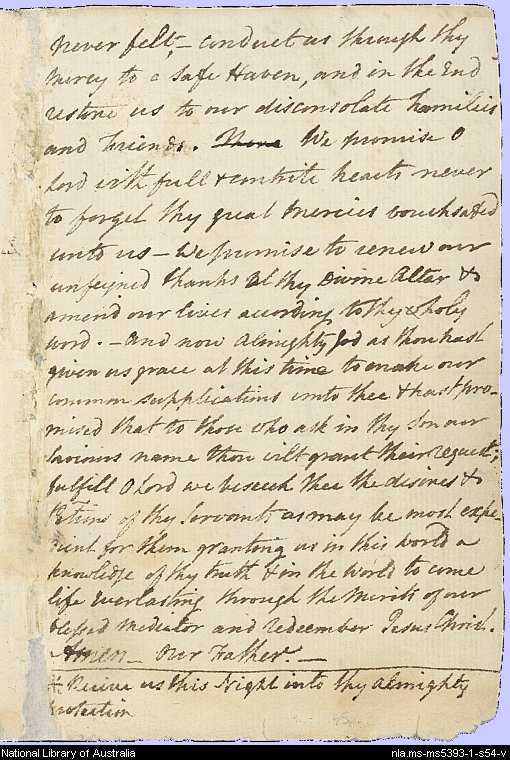 never felt, – conduct us through thy
mercy to a safe Haven, and in the End
restore us to our disconsolate families
and friends. We promise O
Lord with full & contrite hearts never
to forget thy great mercies vouchsafed
unto us – We promise to renew our
unfeigned thanks at thy Divine Altar & to
amend our lives according to thy holy
word. – And now Almighty God as thou hast
given us grace at this time to make our
common supplications unto thee & hast pro-
mised that to those who ask in thy Son our
Saviours name thou wilt grant their requests,
fulfill O Lord we beseech thee the desires &
of thy Servants as may be most expe-
dient for them granting us in this world a
knowledge of thy truth & in the World to come
life Everlasting through the Merits of our
blessed Mediator and Redeemer Jesus Christ.
Amen – Our Father. –
Recive us this Night into thy Almighty
protection
National Library of Australia
nla.ms-ms5393-1-s54-v